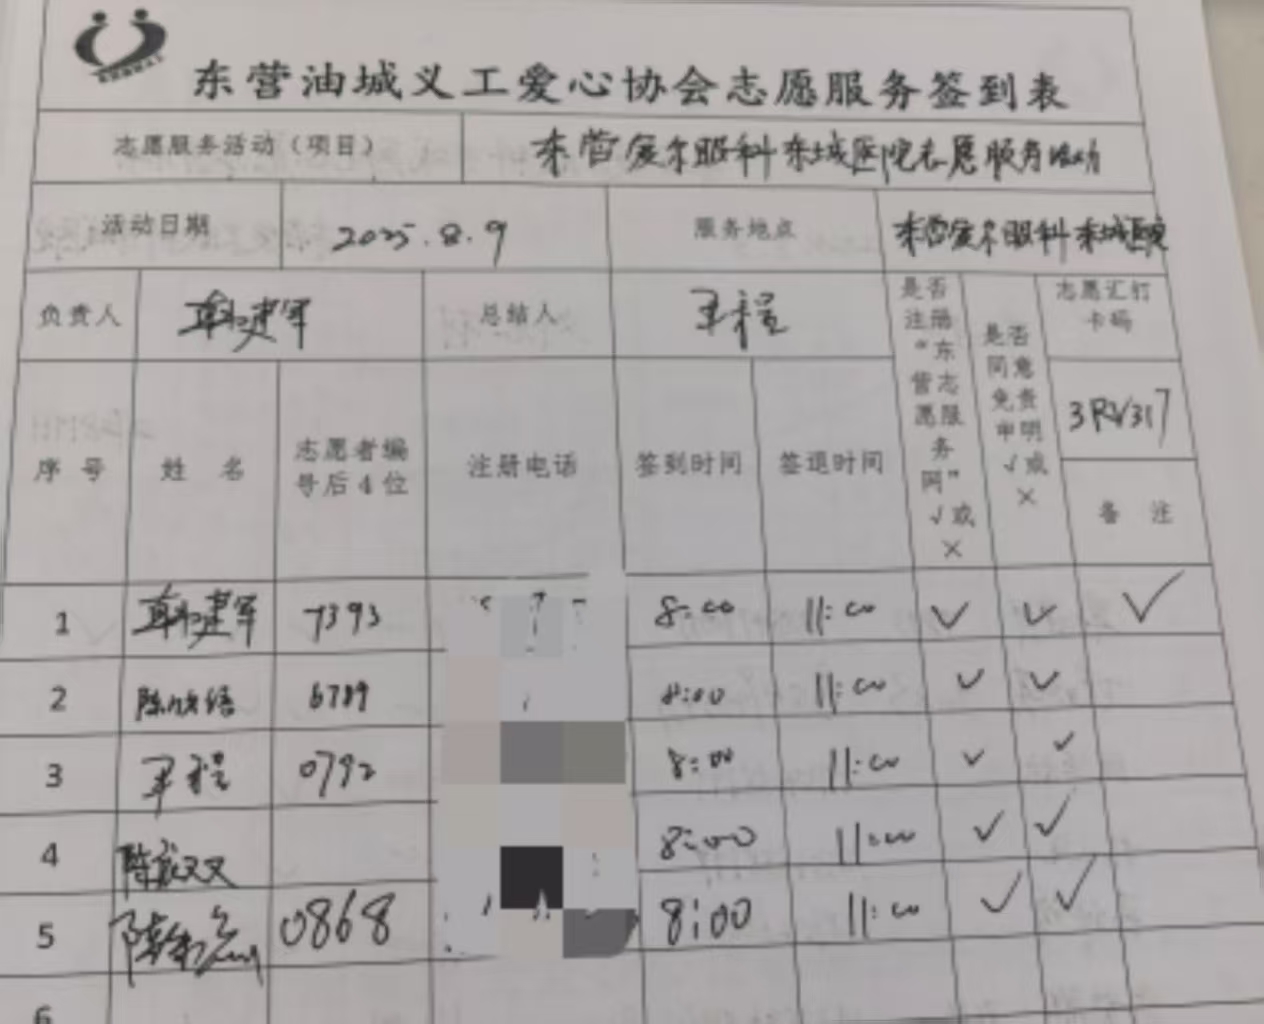 东营油城义工爱心协会志愿服务签到表
志愿服务活动（项目） 东营爱尔眼科东城医院志愿服务活动
活动日期 2025.8.9 服务地点 东营爱尔眼科东城医院
负责人 韩建军 总结人 王程 是否注册“东营志愿服务网”√或× 是否同意免责申明√或× 志愿汇打卡码
3RV317
序号 姓名 志愿者编号后4位 注册电话 签到时间 签退时间 备注
1 韩建军 7393 8:00 11:00 √ √ √
2 陈 6789 8:00 11:00 √ √
3 王程 0792 8:00 11:00 √ √
4 陈 8:00 11:00 √ √
5 0868 8:00 11:00 √ √
6